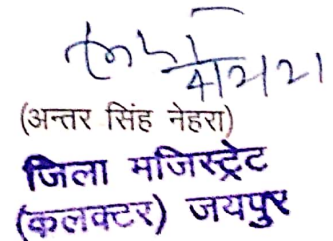 4/2/21
(अन्तर सिंह नेहरा)
जिला मजिस्ट्रेट
(कलक्टर) जयपुर